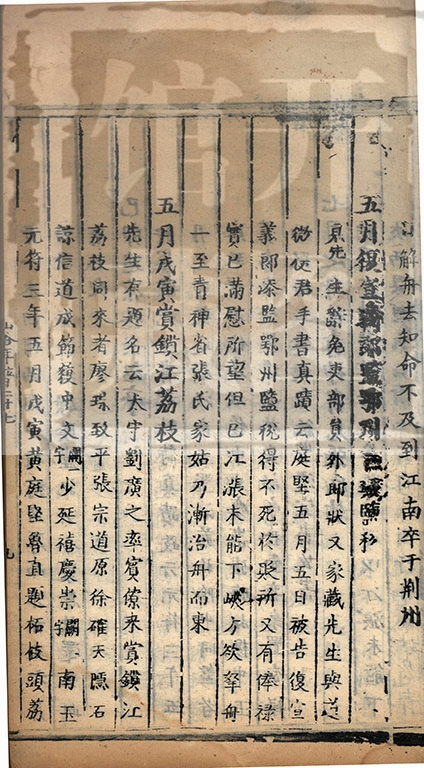 解舟去知命不及到江南卒于荆州
五月復宣義郎監鄂州在城鹽稅
見先生辭免吏部員外郎狀又家藏先生與
微使君手書真蹟云庭堅五月五日被告復宣
義郎添監鄂州鹽稅得不死於貶所又有俸祿
實已滿慰所望但巴江漲未能下峽方營舟
一至青神省張氏家姑乃漸治舟而東
五月戊寅賞鎖江荔枝
先生有題名云太守劉廣之率賓僚來賞鎖江
荔枝同來者廖琮致平張宗道原徐確天隱石
諒信道成節𫖮中文闕字少延禧慶崇闕字南玉
元符三年五月戊寅黃庭堅魯直題柘枝頭荔
山谷年譜卷二十七
九
开馆